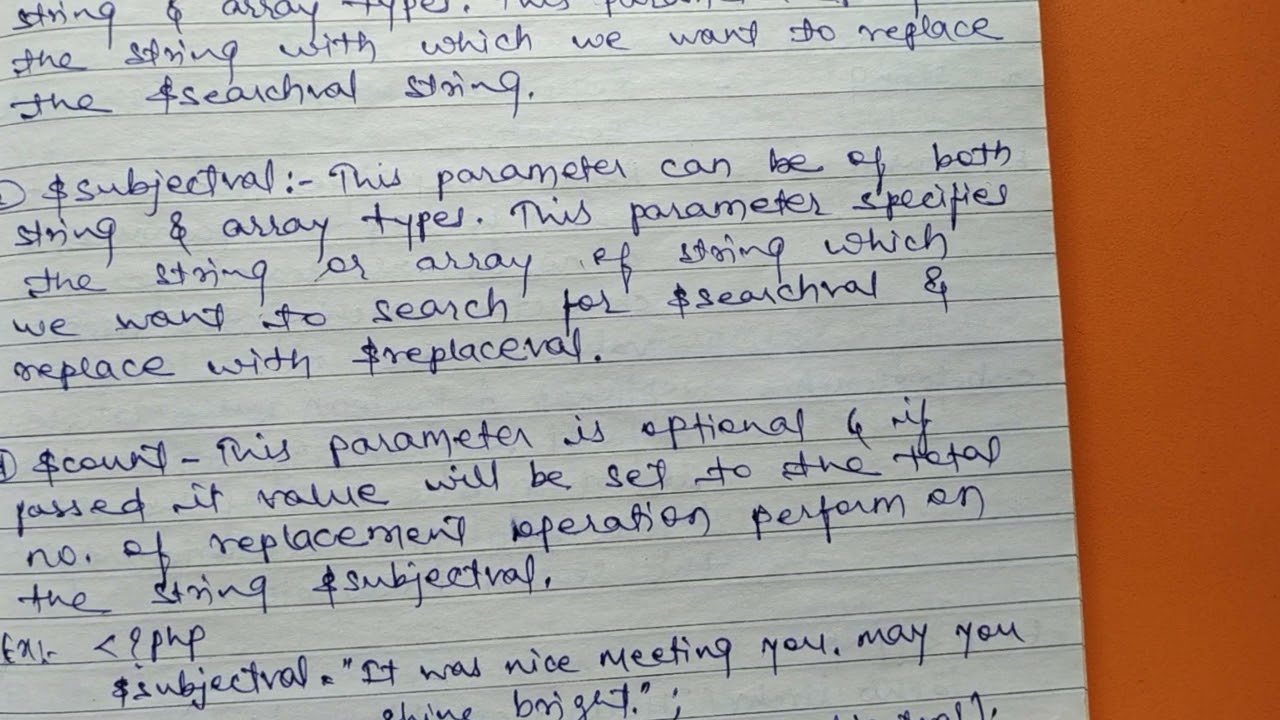 string & array types. This
the string with which we want to replace
the $searchval string.
$subjectval:- This parameter can be of both
string & array types. This parameter specifies
the string or array of string which
we want to search for $searchval &
replace with $replaceval.
$count - This parameter is optional & if
passed it value will be set to the total
no. of replacement operation perform on
the string $subjectval.
Ex:- <?php
$subjectval = "It was nice meeting you. may you
shine bright.";